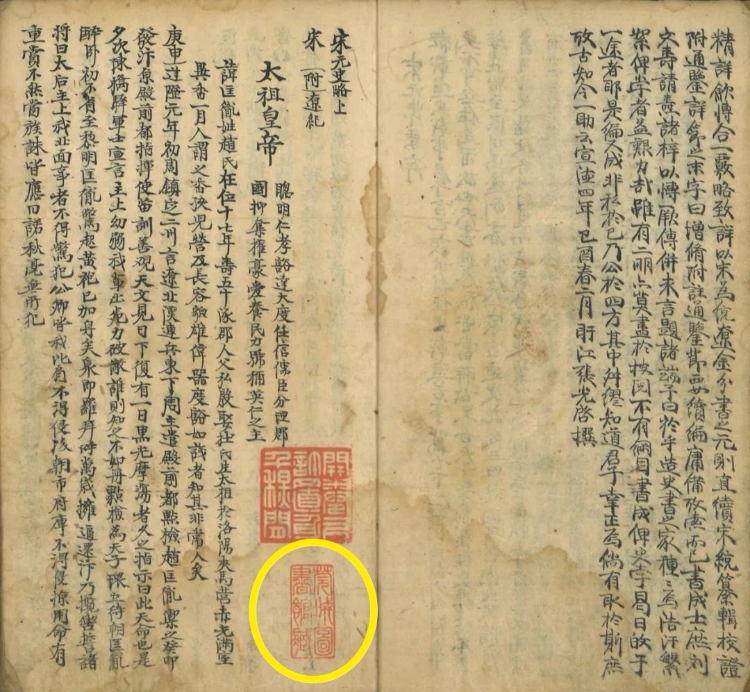 精詳飲博合一覈略致詳以宋為統遼金分書之元則直續宋統纂輯校證
附通鑒詳節之末字曰增脩附註通鑒節要續編庸備攷焉而已書成士庶刘
文壽請壽諸梓以愽厥傳併求言題諸端予曰於乎造史書之家種〻為浩汗繁
絮俾學者益艱力哉雖有二酉亦莫盡於披閱不有個目書成俾學易日故予
一途者耶是編又成非私於己乃公於四方其中舛繆知道君子幸正焉倘有取於斯庶
攷古知今一助云宣德四年己酉春二月旴江張光啓撰
宋元史略上
宋 附遼紀
太祖皇帝
聰明仁孝豁達大度任信儒臣分理郡
國抑奪權豪愛養民力號稱英仁之主
諱匡胤姓趙氏在位十七年壽五十涿郡人父弘殷娶杜氏生太祖於洛陽夾馬營赤光滿室
異香一月人謂之香孩兒營及長容貌雄偉器度豁如識者知其非常人矣
庚申建隆元年初周鎮定二州言遼北漢連兵東下周主遣殿前都點檢趙匡胤禦之癸卯
發汴京殿前都指揮使苗訓善观天文見日下復有一日黑光摩盪者久之指示曰此天命也是
夕次陳橋驛軍士宣言主上幼弱我輩出死力破敵誰則知之不如冊點檢為天子環立待朝匡胤
醉臥初不省至黎明匡胤驚起黄袍已加身矣衆即羅拜呼萬歲擁逼還汴乃攬轡誓諸
將曰太后主上我北面事者不得驚犯公卿皆我比肩不得侵凌朝市府庫不得侵掠用命有
重賞不然當族誅皆應曰諾秋毫無所犯
圖
書館藏